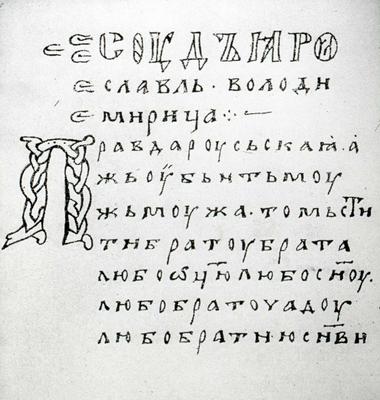 СОУДЪ ꙖРО
СЛАВЛЬ · ВОЛОДИ
МИРИЦА ⁘ —
Правда роусьскаꙗ · а
жь оубьѥть моу
жь моужа · то мьсти
ти братоу брата
любо ѡц҃ю любо сн҃оу ·
любо братоучадоу
любо братню сн҃ви